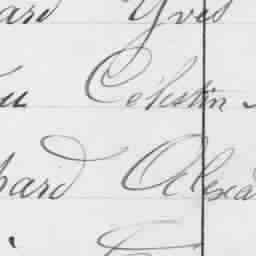 ard Yves
u Célestin
pard Alexa